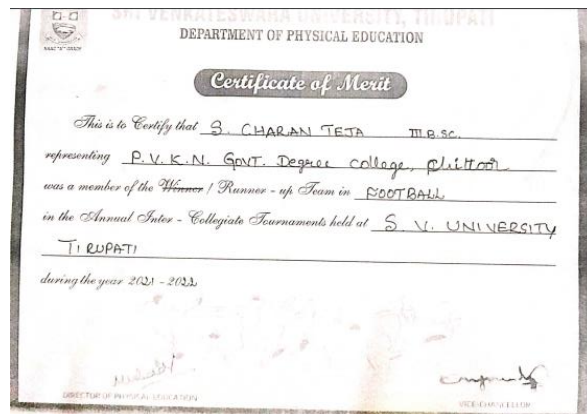 SRI VENKATESWARA UNIVERSITY, TIRUPATI
DEPARTMENT OF PHYSICAL EDUCATION
Certificate of Merit
This is to Certify that S. CHARAN TEJA III B.SC.
representing P.V.K.N. GOVT. Degree college, Chittoor
was a member of the Winner / Runner - up Team in FOOTBALL
in the Annual Inter - Collegiate Tournaments held at S. V. UNIVERSITY
TIRUPATI
during the year 2021 - 2022
DIRECTOR OF PHYSICAL EDUCATION
VICE-CHANCELLOR